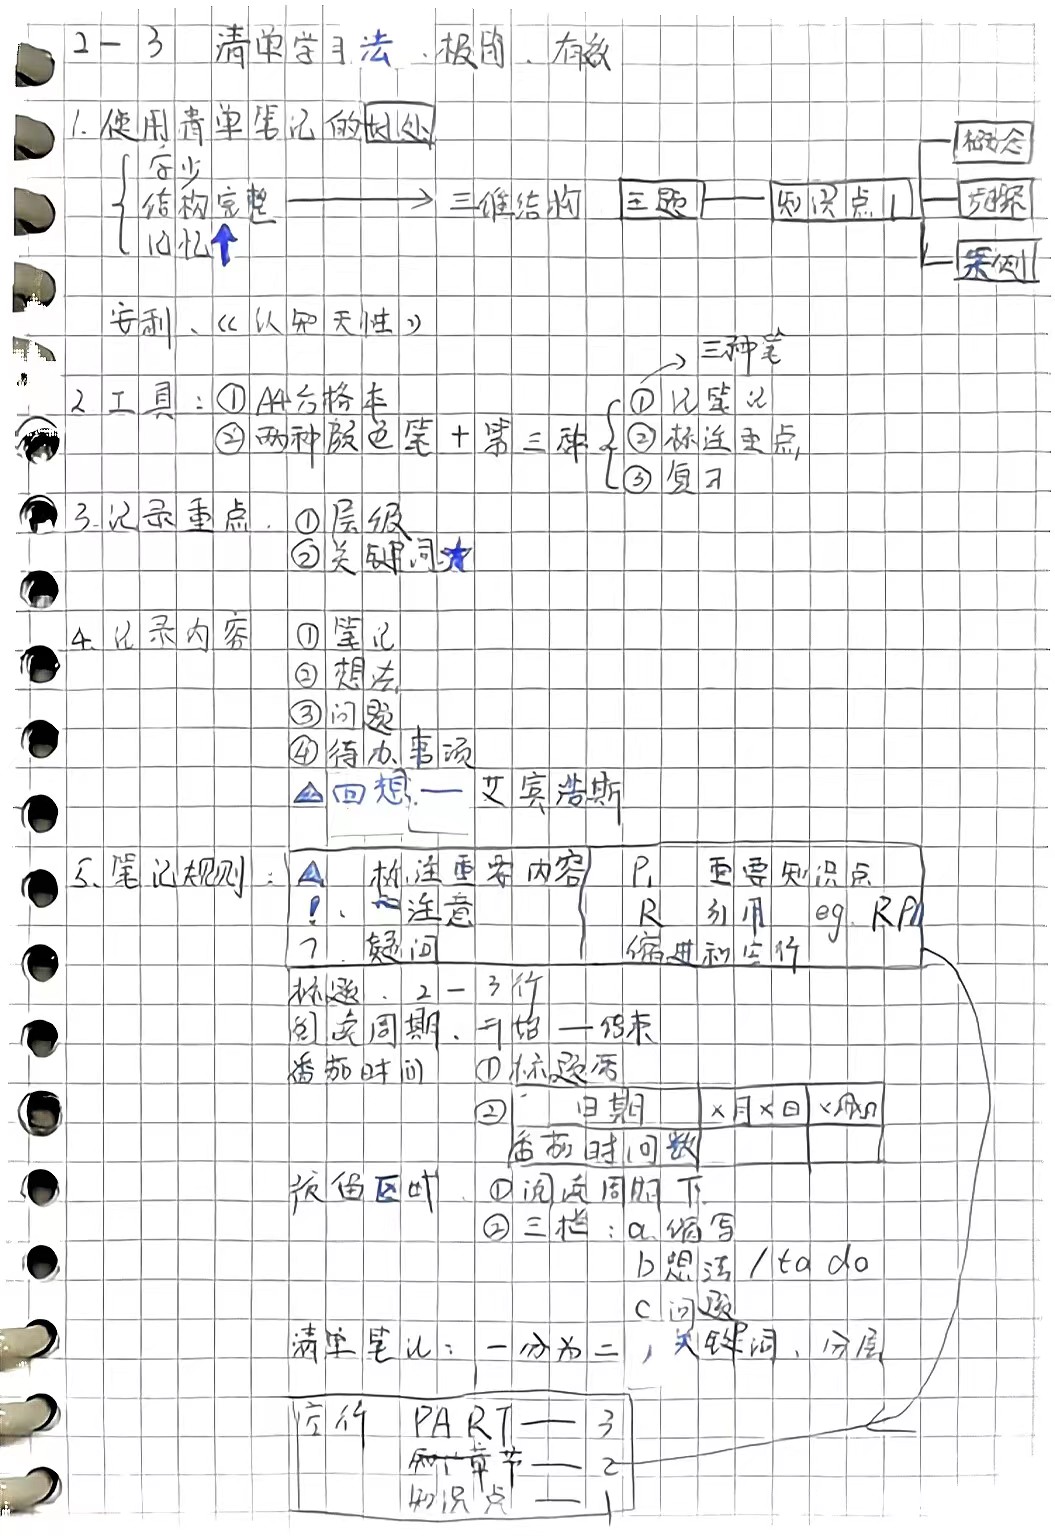 2-3 清单学习法、极简、有效
1. 使用清单笔记的好处
字少
结构完整 → 三维结构 主题 — 知识点1
概念
步骤
案例
记忆↑
安利、《认知天性》
→ 三种笔
2 工具：① A4方格本
② 两种颜色笔 + 第三种
① 记笔记
② 标注重点
③ 复习
3.记录重点. ① 层级
② 关键词★
4.记录内容 ① 笔记
② 想法
③ 问题
④ 待办事项
△ 回想 — 艾宾浩斯
5.笔记规则： △ 标注重要内容 P, 重要知识点
!、 注意 R 引用 eg. RP1
? . 疑问 缩进和空行
标题、2-3行
阅读周期、开始—结束
番茄时间 ①标题后
② 日期 x月x日 x月x日
番茄时间数
预留区域. ① 阅读周期下
② 三栏：a.缩写
b 想法 / to do
c 问题
清单笔记：一分为二，关键词、分层
空行 PART — 3
章节 — 2
知识点 — 1